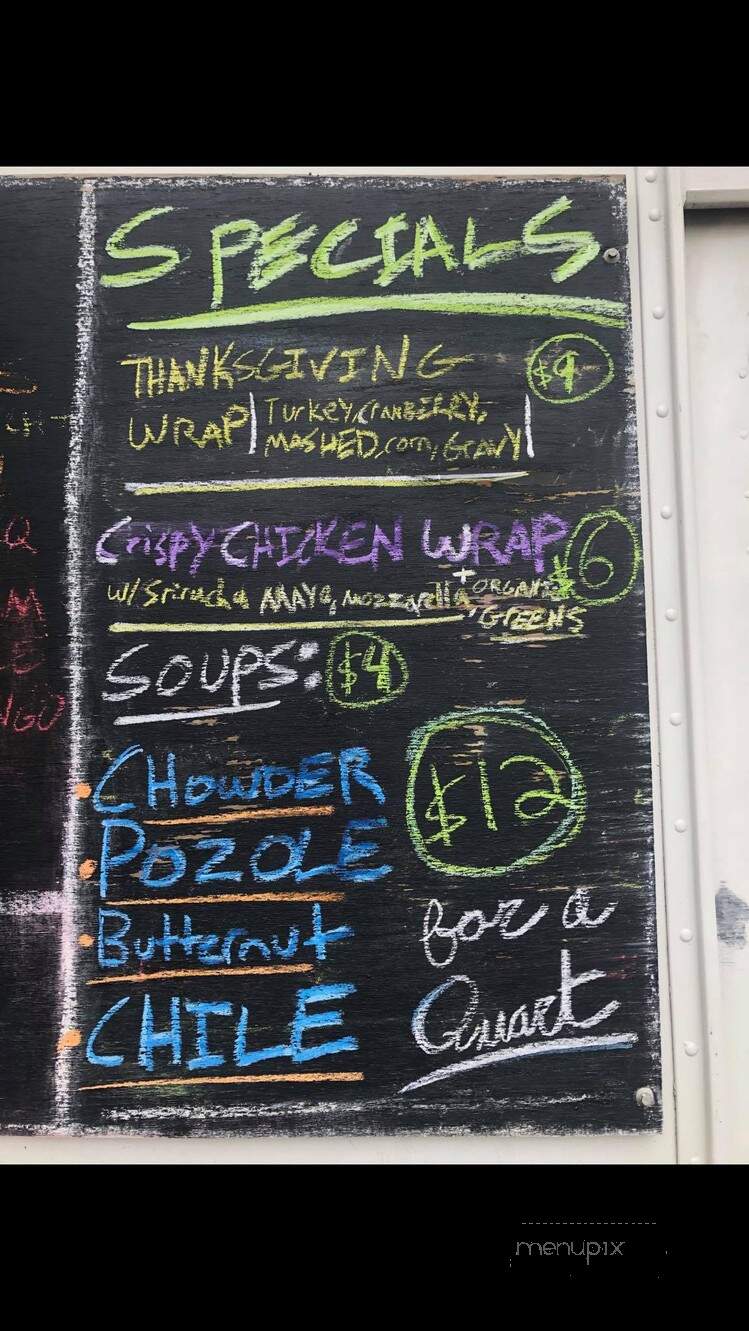 SPECIALS
THANKSGIVING $9
WRAP | Turkey, CRANBERRY,
MASHED, corn, GRAVY |
CrispY CHICKEN WRAP $6
w/ Sriracha MAYO, mozzarella + ORGANIC
GREENS
SOUPS: $4
CHOWDER
$12
POZOLE
for a
Butternut
Quart
CHILE
menupix